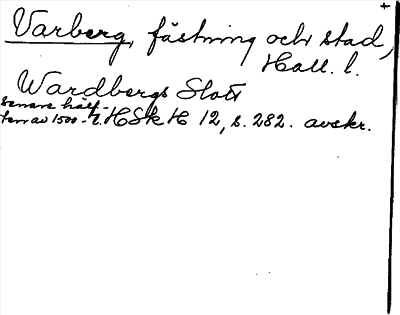 Varberg, fästning och stad,
Hall. l.
Wardbergs Slott
senare hälf-
ten av 1500-t. HSk H 12, s. 282. avskr.